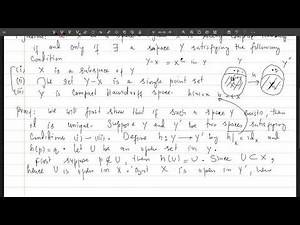 if and only if ∃ a space Y satisfying the following
Condition Y-X = X^c in Y Y Y'
(i) X is a subspace of Y
(ii) The set Y-X is a single point set
(iii) Y is compact Hausdorff space.
Proof: we will first show that if such a space Y exists, then
it is unique. Suppose Y and Y' be two spaces satisfying
Conditions (i) → (iii). Define h: Y → Y' by h|x = idx and
h(p) = q. Let U be an open set in Y.
First suppose p∉U, then h(U) = U. Since U⊂X,
hence U is open in X. X is open in Y', hence